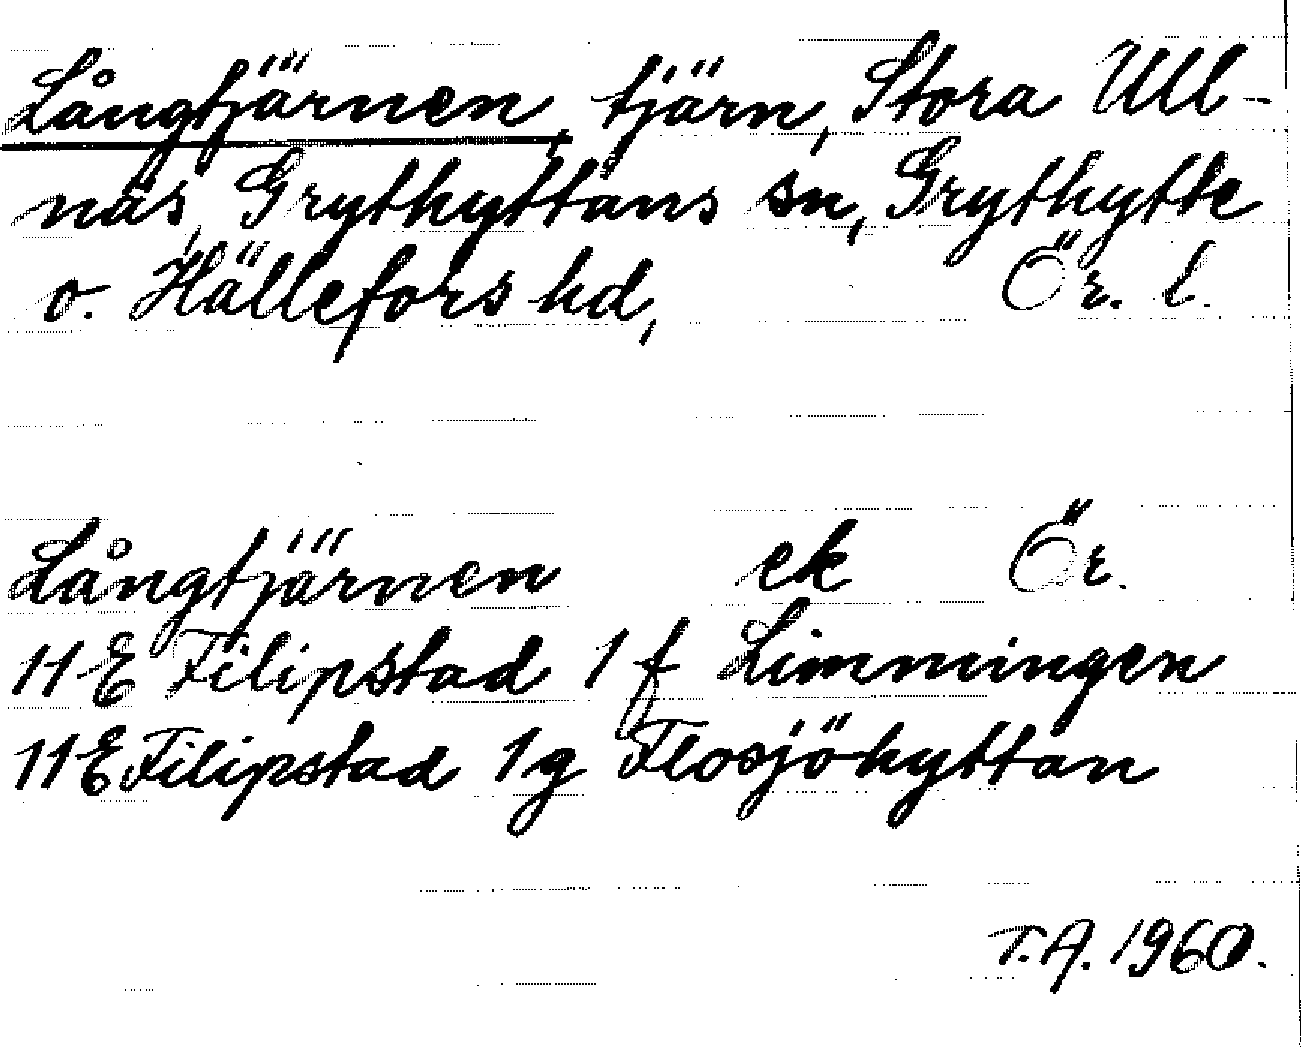 Långtjärnen, tjärn, Stora Ull-
näs, Grythyttans sn, Grythytte
o. Hällefors hd, Ör. l.
Långtjärnen ek Ör.
11E Filipstad 1f Limmingen
11E Filipstad 1g Flosjöhyttan
T.A. 1960.